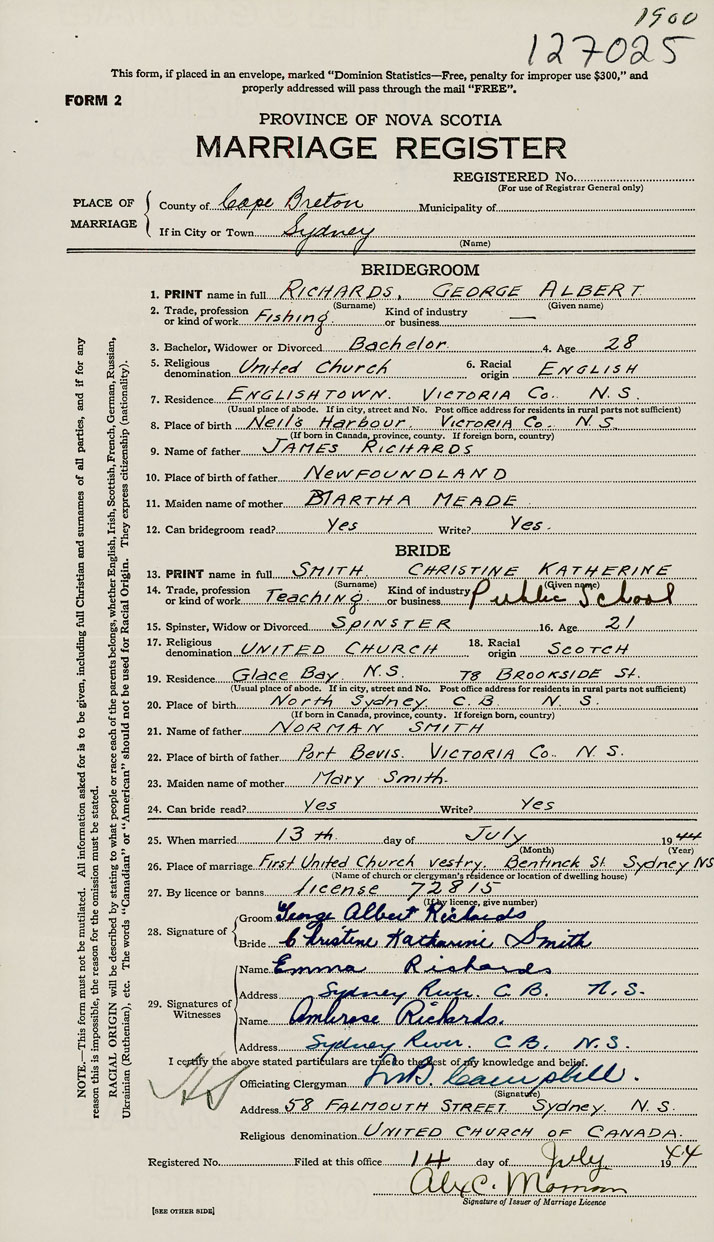 1900
127025
This form, if placed in an envelope, marked "Dominion Statistics—Free, penalty for improper use $300," and
properly addressed will pass through the mail "FREE".
FORM 2
PROVINCE OF NOVA SCOTIA
MARRIAGE REGISTER
REGISTERED No.
(For use of Registrar General only)
PLACE OF MARRIAGE
County of Cape Breton Municipality of
If in City or Town Sydney
(Name)
BRIDEGROOM
1. PRINT name in full RICHARDS, GEORGE ALBERT
(Surname) (Given name)
2. Trade, profession or kind of work Fishing Kind of industry or business —
3. Bachelor, Widower or Divorced Bachelor 4. Age 28
5. Religious denomination United Church 6. Racial origin ENGLISH
7. Residence ENGLISHTOWN. VICTORIA Co. N.S.
(Usual place of abode. If in city, street and No. Post office address for residents in rural parts not sufficient)
8. Place of birth Neil's Harbour. VICTORIA Co. N.S.
(If born in Canada, province, county. If foreign born, country)
9. Name of father JAMES RICHARDS
10. Place of birth of father NEWFOUNDLAND
11. Maiden name of mother MARTHA MEADE
12. Can bridegroom read? Yes Write? Yes.
BRIDE
13. PRINT name in full SMITH CHRISTINE KATHERINE
(Surname) (Given name)
14. Trade, profession or kind of work Teaching Kind of industry or business Public School
15. Spinster, Widow or Divorced SPINSTER 16. Age 21
17. Religious denomination UNITED CHURCH 18. Racial origin SCOTCH
19. Residence Glace Bay. N.S. 78 BROOKSIDE St.
(Usual place of abode. If in city, street and No. Post office address for residents in rural parts not sufficient)
20. Place of birth North Sydney C.B. N.S.
(If born in Canada, province, county. If foreign born, country)
21. Name of father NORMAN SMITH
22. Place of birth of father Port Bevis. VICTORIA Co. N.S.
23. Maiden name of mother Mary Smith.
24. Can bride read? Yes Write? Yes
25. When married 13 th. day of July 1944
(Month) (Year)
26. Place of marriage First United Church vestry. Bentinck St. Sydney NS
(Name of church or clergyman's residence or location of dwelling house)
27. By licence or banns license 72815
(If by licence, give number)
28. Signature of
Groom George Albert Richards
Bride Christine Katharine Smith
29. Signatures of Witnesses
Name Emma Richards
Address Sydney River. C.B. N.S.
Name Ambrose Richards.
Address Sydney River. C.B. N.S.
I certify the above stated particulars are true to the best of my knowledge and belief.
Officiating Clergyman Campbell.
(Signature)
Address 58 FALMOUTH STREET Sydney. N.S.
Religious denomination UNITED CHURCH OF CANADA.
Registered No. Filed at this office 14 day of July 1944
Alex C.
Signature of Issuer of Marriage Licence
[SEE OTHER SIDE]
NOTE.—This form must not be mutilated. All information asked for is to be given, including full Christian and surnames of all parties, and if for any
reason this is impossible, the reason for the omission must be stated.
RACIAL ORIGIN will be described by stating to what people or race each of the parents belongs, whether English, Irish, Scottish, French, German, Russian,
Ukrainian (Ruthenian), etc. The words "Canadian" or "American" should not be used for Racial Origin. They express citizenship (nationality).